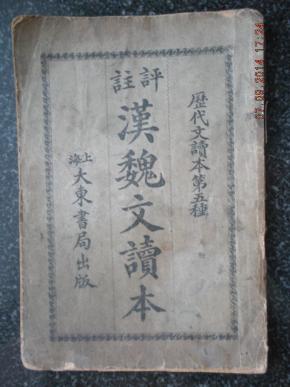 歷代文讀本第五種
評註
漢魏文讀本
上海
大東書局出版
07.09.2014 17:24